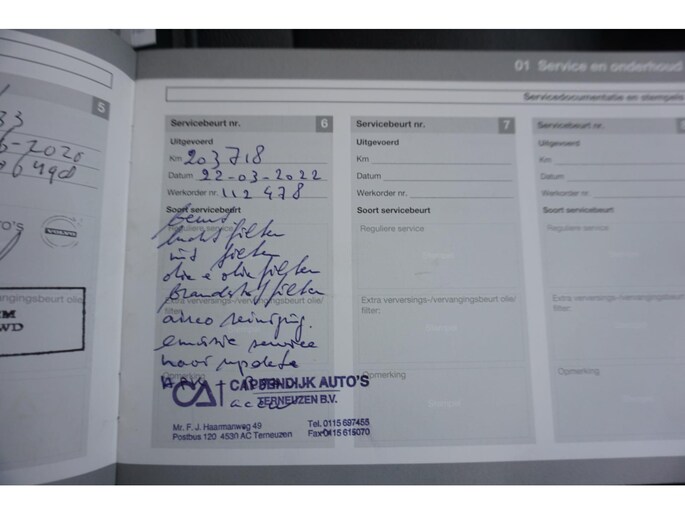 01 Service en onderhoud
Servicedocumentatie en stempels
5
33
-2020
VOLVO
TO'S
vervangingsbeurt olie/
M
WD
Servicebeurt nr. 6
Uitgevoerd
Km 203718
Datum 22-03-2022
Werkorder nr. 112478
Soort servicebeurt
Reguliere service
beurt
lucht filter
int filter
olie + olie filter
brandstof filter
Extra verversings-/vervangingsbeurt olie/
filter:
airco reiniging.
emissie service
voor update
Opmerking
accu
CAPPENDIJK AUTO'S
TERNEUZEN B.V.
Mr. F. J. Haarmanweg 49
Postbus 120 4530 AC Terneuzen
Tel. 0115 697455
Fax 0115 615070
Servicebeurt nr. 7
Uitgevoerd
Km
Datum
Werkorder nr.
Soort servicebeurt
Reguliere service
Extra verversings-/vervangingsbeurt olie/
filter:
Opmerking
Servicebeurt nr.
Uitgevoerd
Km
Datum
Werkorder nr.
Soort servicebeurt
Reguliere service
Extra verversings-/vervangingsbeurt
filter:
Opmerking